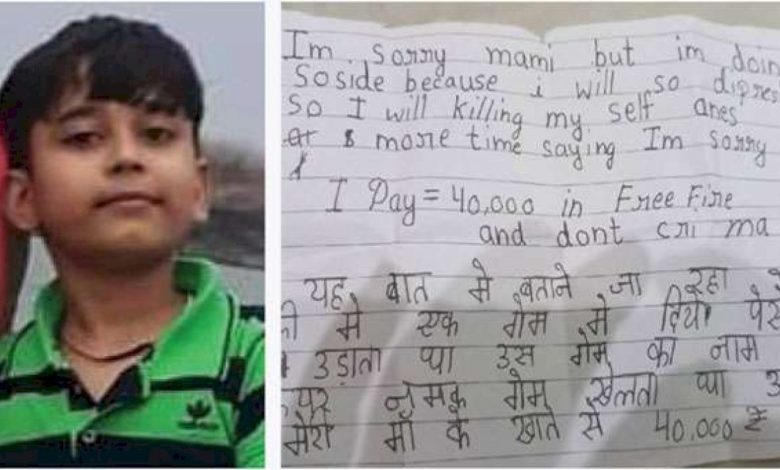 Im sorry mami but im doin
Soside because i will so dipres
So I will killing my self anes
& more time saying Im sorry
I Pay = 40,000 in Free Fire
and dont cri ma
यह बात मे बताने जा रहा
मे एक गेम मे दिया पेस
उड़ाता था उस गेम का नाम
नमक गेम खेलता था
मेरी माँ के खाते से 40,000 रु